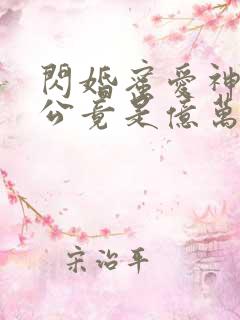 閃婚蜜愛神
公竟是億萬
宋治平